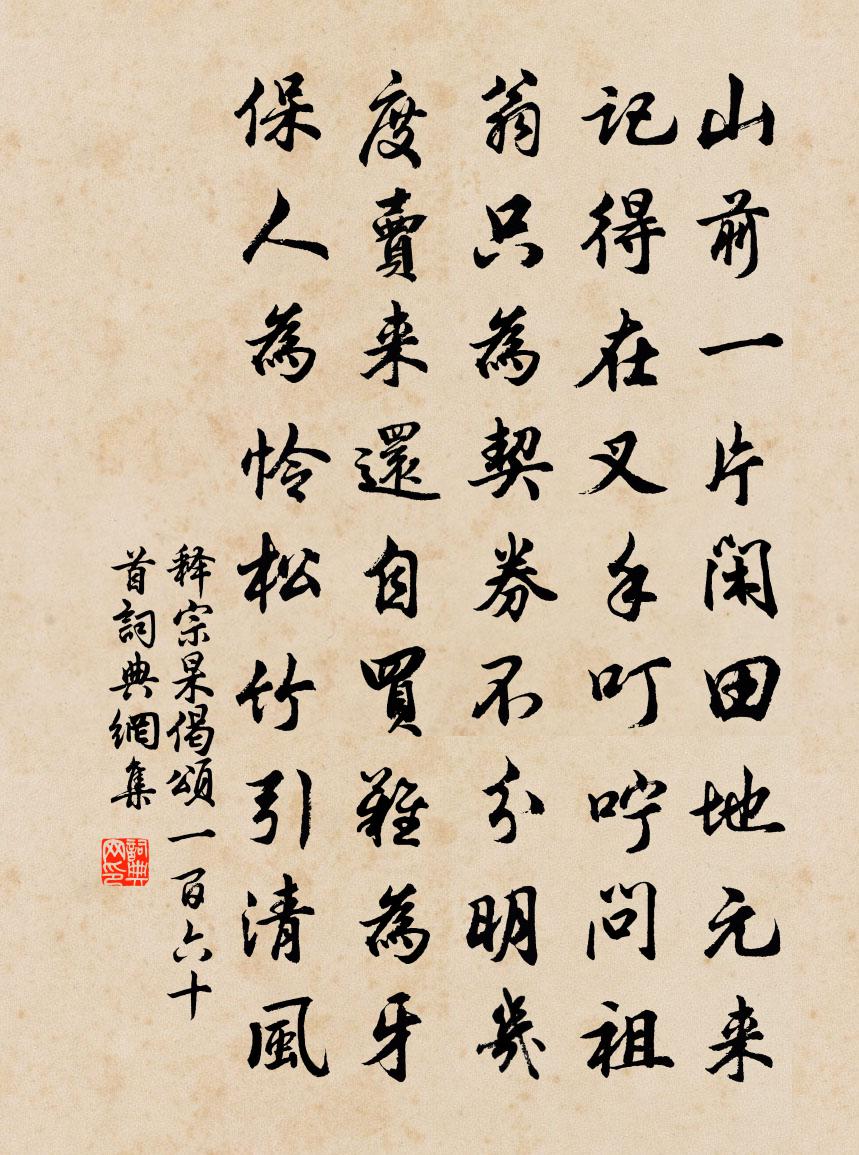 山前一片閑田地元来
記得在叉手叮嚀問祖
翁只為契券不分明幾
度賣来還自買難為牙
保人為怜松竹引清風
釋宗杲偈頌一百六十
首詞典網集
詞典網印